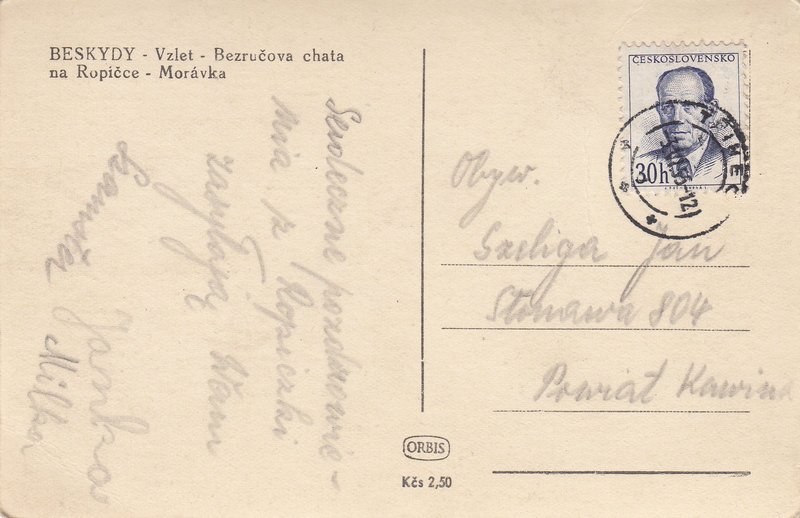 BESKYDY - Vzlet - Bezručova chata
na Ropičce - Morávka
Serdeczne pozdrowie-
nia z Ropiczki
zasyłają Wam
Janka
Milka
ČESKOSLOVENSKO
30h
TŘINEC
Obyw.
Szeliga Jan
Stonawa 804
Powiat Karwina
ORBIS
Kčs 2,50